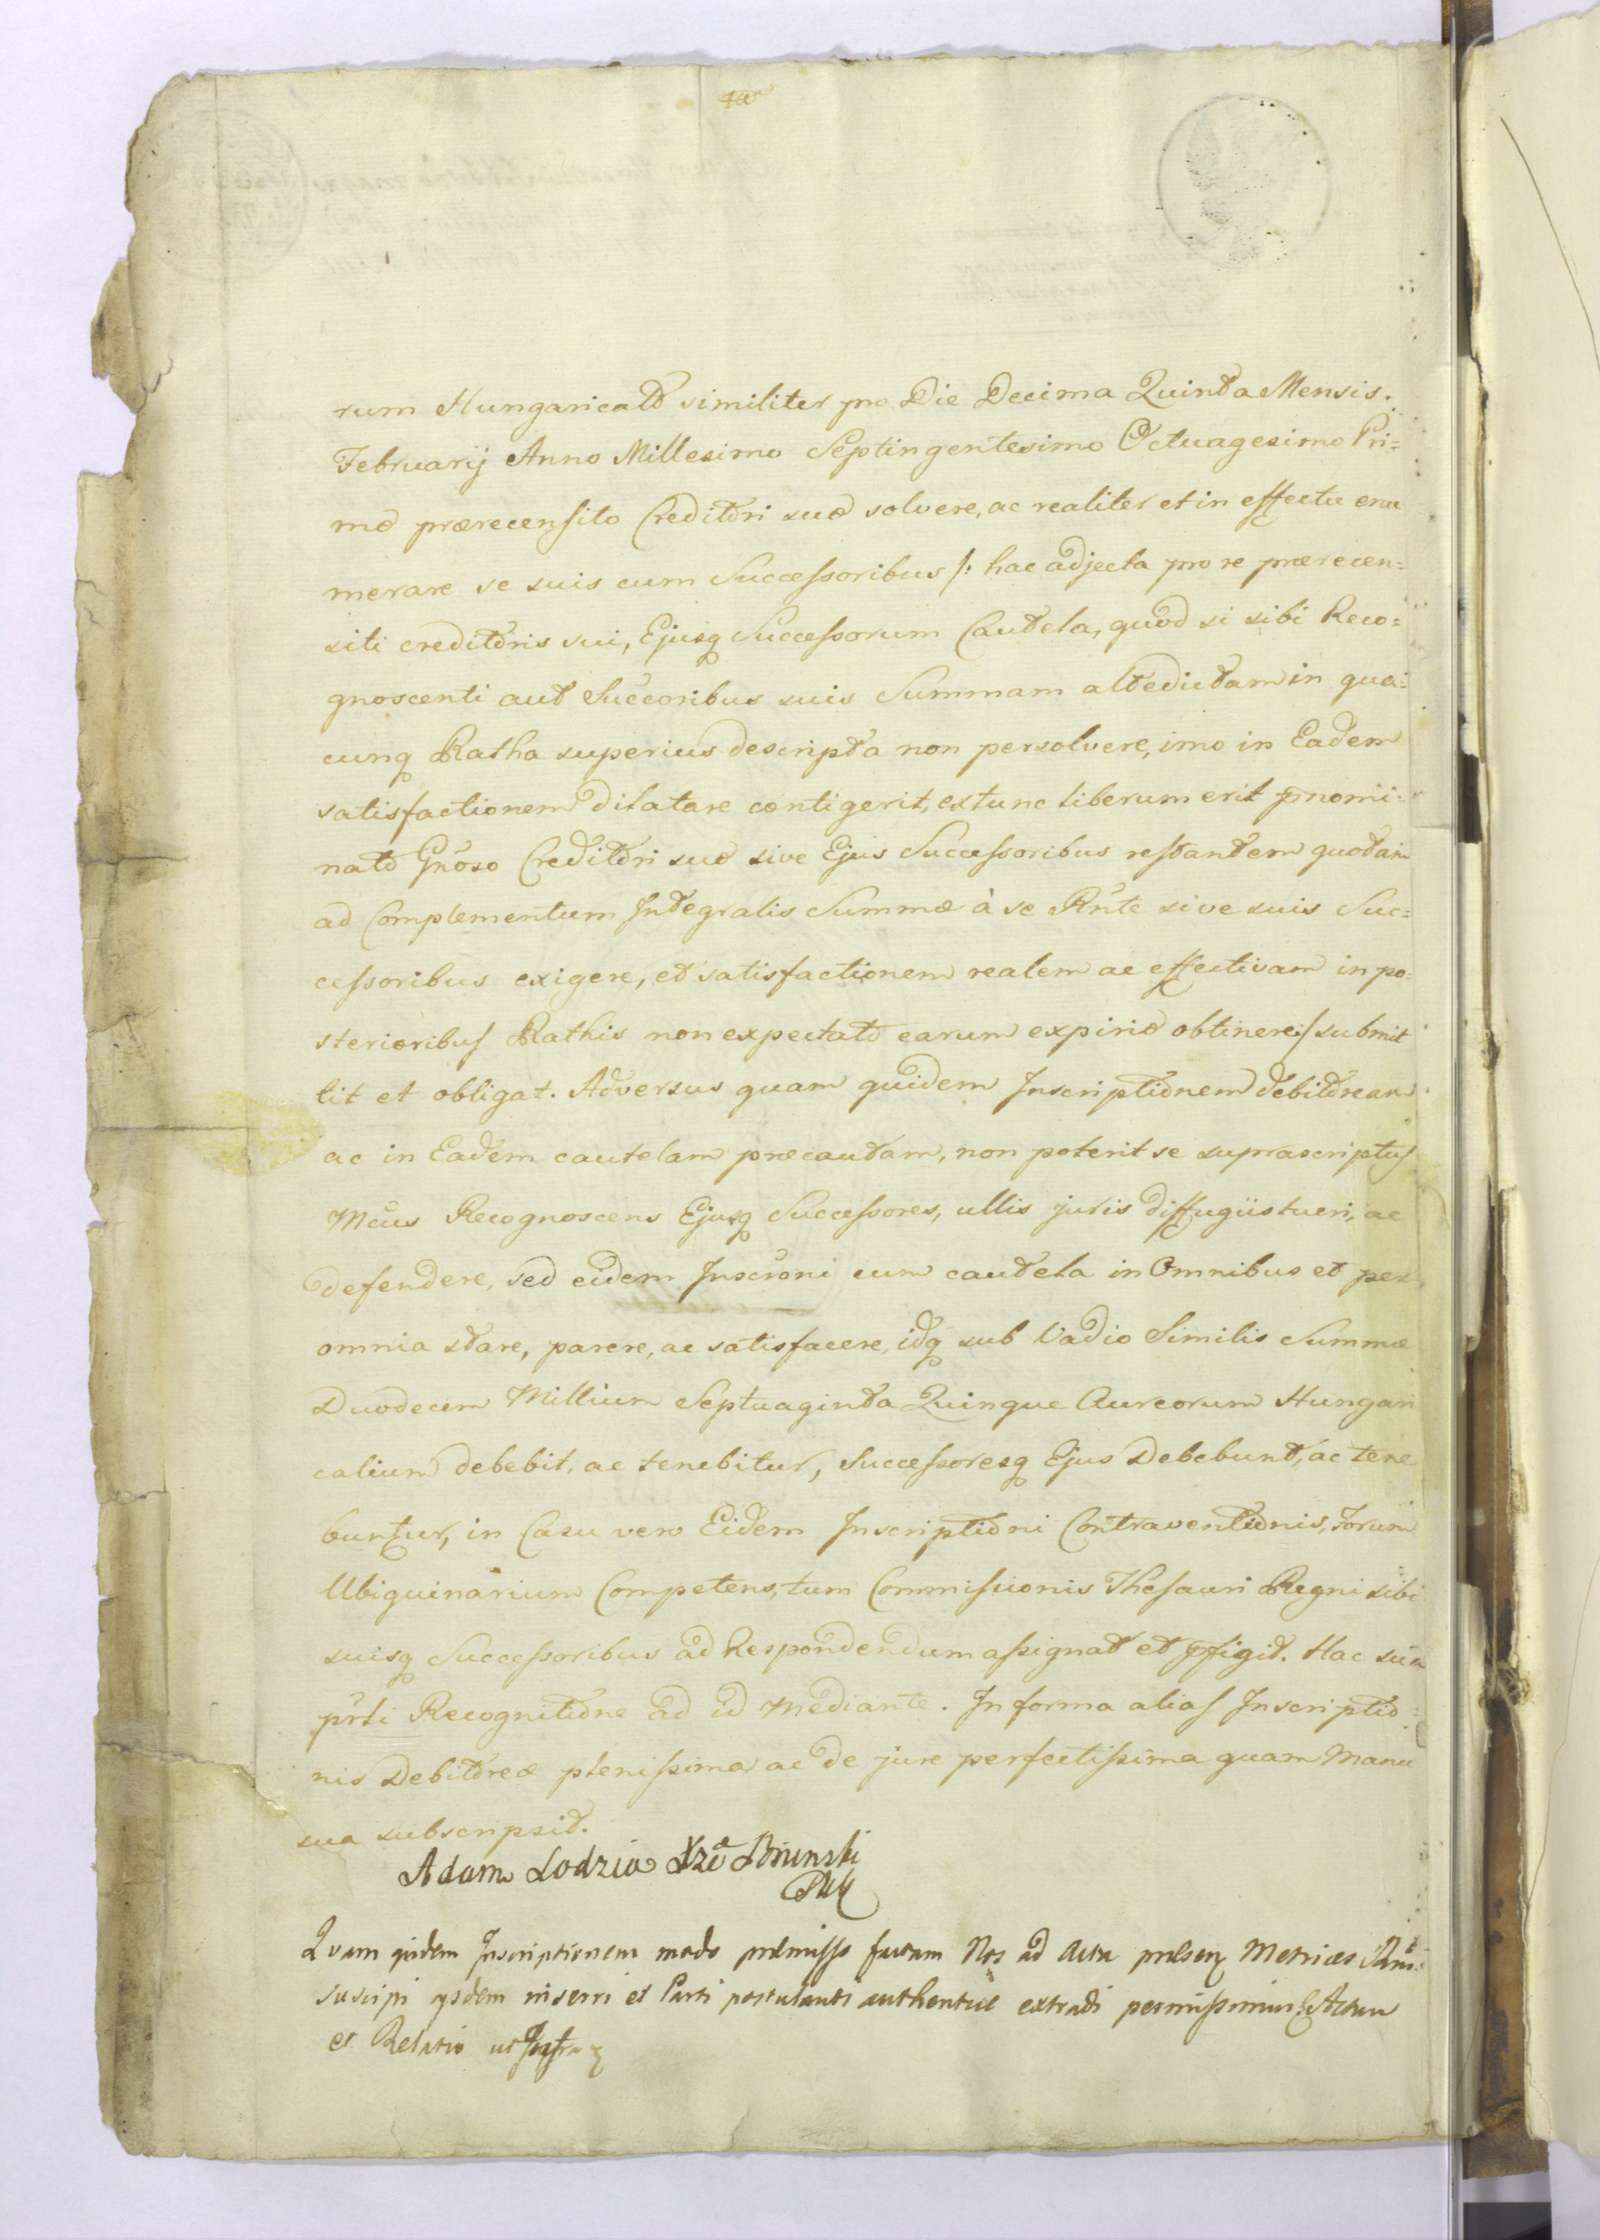 rum Hungaricalũ similiter pro Die Decima Quinta Mensis
Februarij Anno Millesimo Septingentesimo Octuagesimo Pri=
mo prærecensito Creditori suo solvere, ac realiter et in effectu enu
merare se suis cum Successoribus /: hac adjecta pro re prærecen=
siti creditoris sui, Ejusq Successorum Cautela, quod si sibi Reco=
gnoscenti aut Succõribus suis Summam altedictam in qua=
cunq Ratha superius descripta non persolvere, imo in Eadem
satisfactionem dilatare contigerit, extunc liberum erit pnomi=
nato Gnõso Creditori suo sive Ejus Successoribus restantem quotam
ad Complementum Integralis Summæ à se Rñte sive suis Suc=
cessoribus exigere, et satisfactionem realem ac effectivam in po=
sterioribus Rathis non expectato earum expirio obtinere :/ submit
tit et obligat. Adversus quam quidem Inscriptionem debitoream
ac in Eadem cautelam præcautam, non poterit se suprascriptus
Mcũs Recognoscens Ejusq Successores, ullis juris diffugiis tueri, ac
defendere, sed eidem Inscrõni cum cautela in Omnibus et per
omnia stare, parere, ac satisfacere, idq sub Vadio Similis Summæ
Duodecem Millium Septuaginta Quinque Aureorum Hungari
calium debebit, ac tenebitur, Successoresq Ejus Debebunt, ac tene
buntur, in Casu vero Eidem Inscriptioni Contraventionis, Forum
Ubiquinarium Competens, tum Commissionis Thesauri Regni sibi
suisq Successoribus ad Respondendum assignat et pfigit. Hac sua
prti Recognitione ad id mediante. In forma alias Inscriptio=
nis Debitoreæ plenissima ac de jure perfectissima quam Manu
sua subscripsit.
Adam Lodzia Xże Brunski
PWK
Quam quidem Inscriptionem modo præmisso factam Nos ad Acta præsen Metrices
suscipi ysdem inseri et Parti postulanti authentice extradi permissimus Actum
et Relatio ut Supra